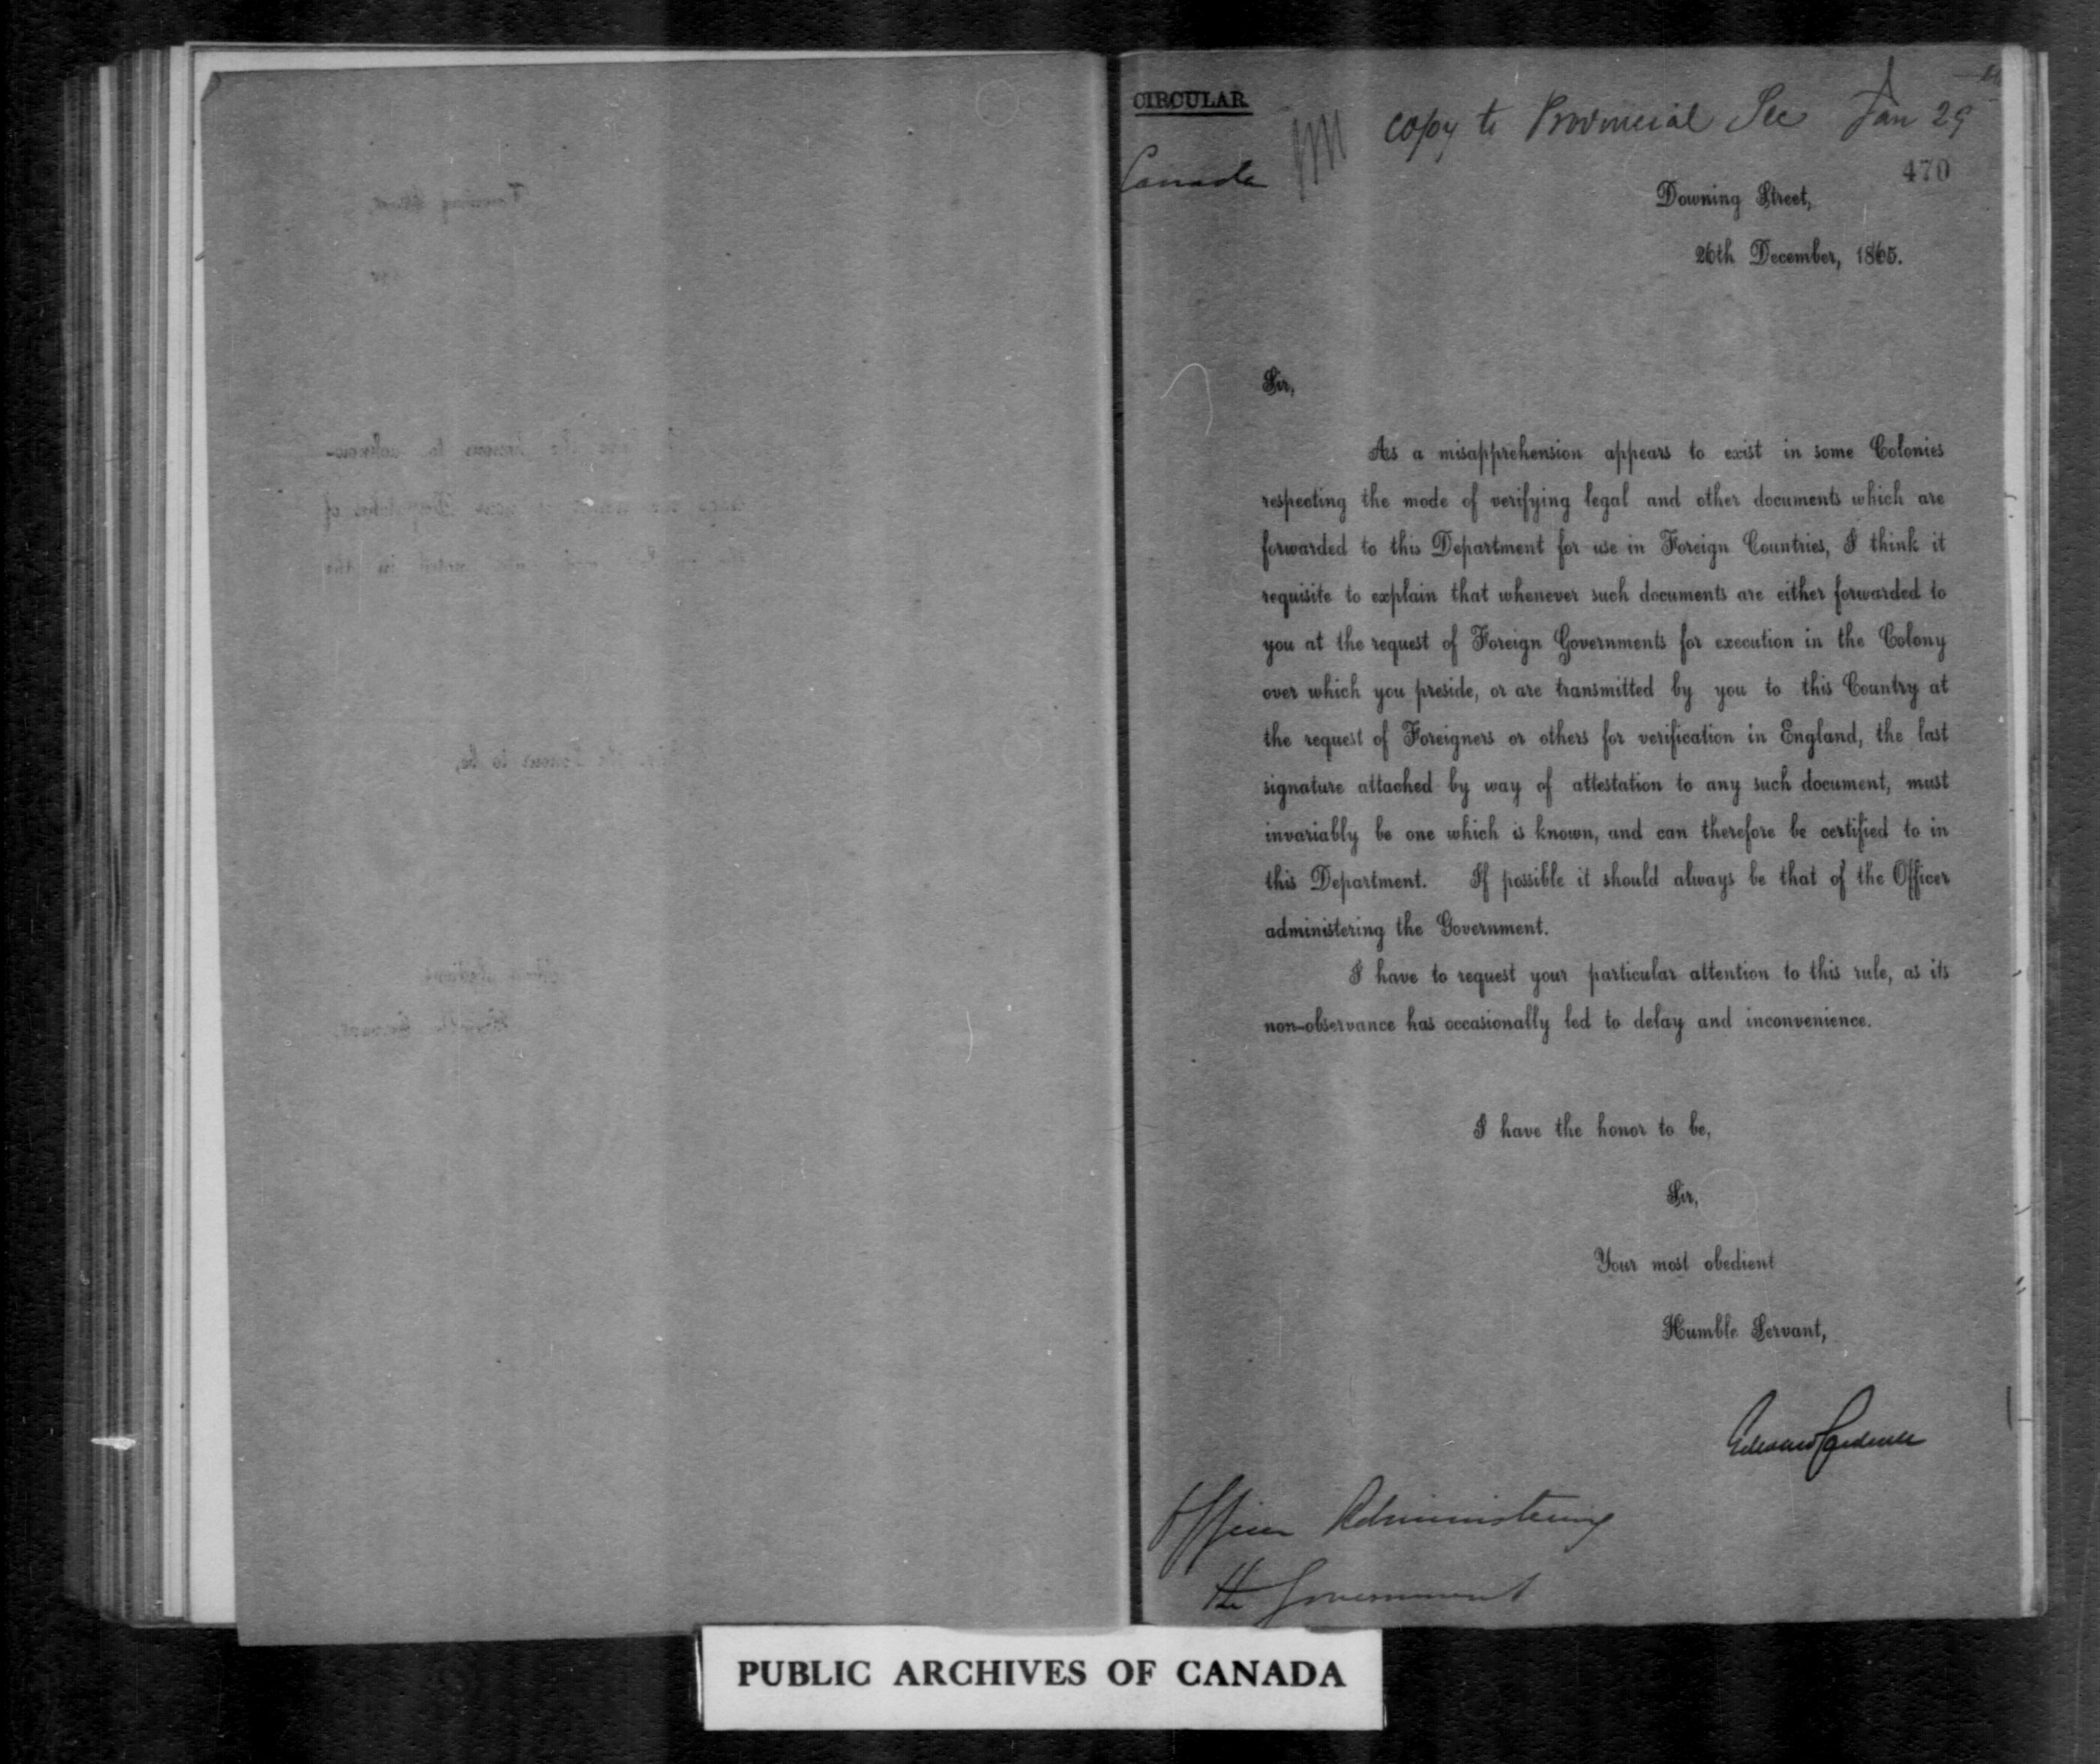 CIRCULAR
copy to Provincial Sec Jan 29
Canada
470
Downing Street,
26th December, 1865.
Sir,
As a misapprehension appears to exist in some Colonies
respecting the mode of verifying legal and other documents which are
forwarded to this Department for use in Foreign Countries, I think it
requisite to explain that whenever such documents are either forwarded to
you at the request of Foreign Governments for execution in the Colony
over which you preside, or are transmitted by you to this Country at
the request of Foreigners or others for verification in England, the last
signature attached by way of attestation to any such document, must
invariably be one which is known, and can therefore be certified to in
this Department. If possible it should always be that of the Officer
administering the Government.
I have to request your particular attention to this rule, as its
non-observance has occasionally led to delay and inconvenience.
I have the honor to be,
Sir,
Your most obedient
Humble Servant,
Edward Cardwell
Officer Administering
the Government
PUBLIC ARCHIVES OF CANADA